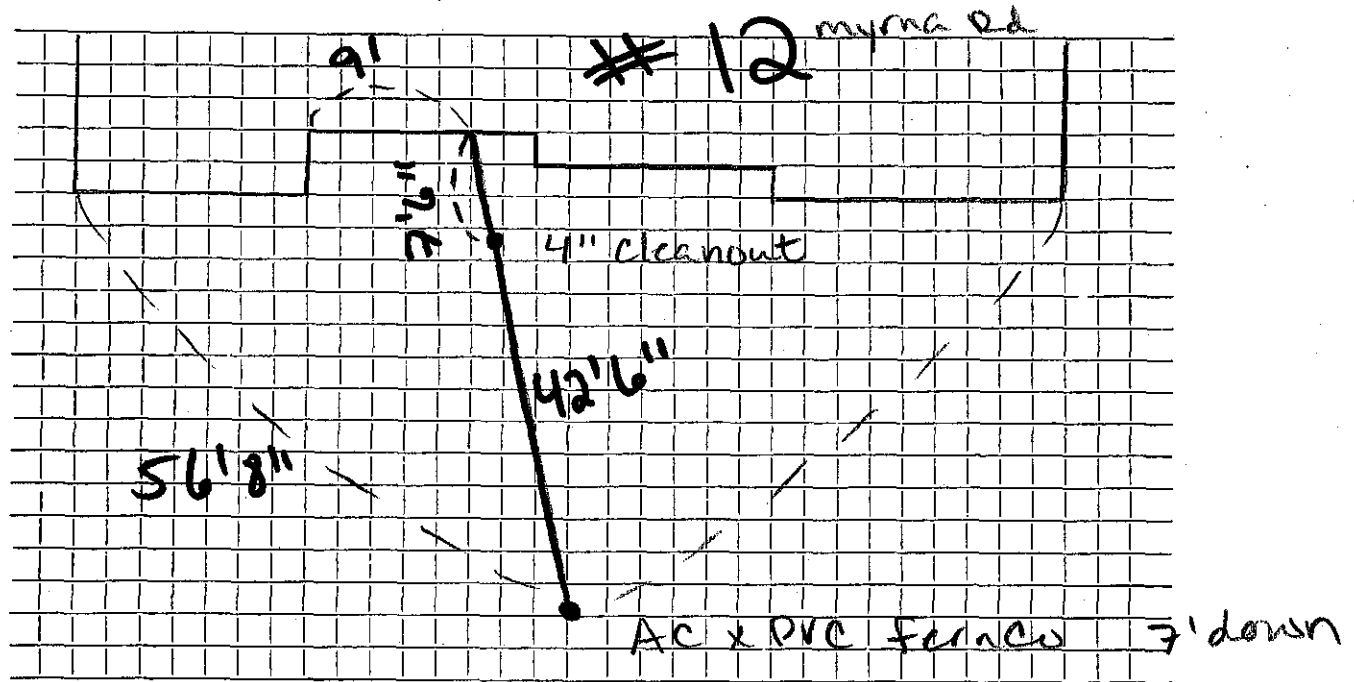 # 12 myrna Rd
9'
7'6"
4" cleanout
42'6"
56'8"
AC x PVC Fernco 7' down